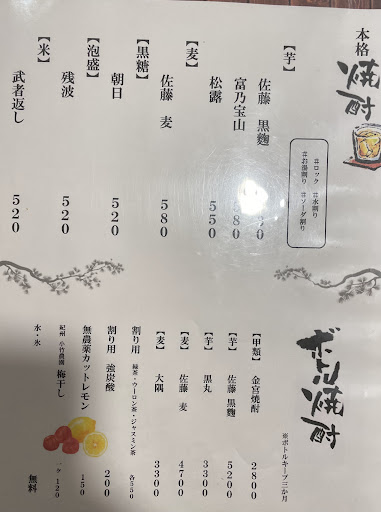 本格焼酎
#ロック #水割り
#お湯割り #ソーダ割り
【芋】
佐藤 黒麹
富乃宝山 580
松露 550
【麦】
佐藤 麦 580
【黒糖】
朝日 520
【泡盛】
残波 520
【米】
武者返し 520
ボトル焼酎
※ボトルキープ三か月
【甲類】 金宮焼酎 2800
【芋】 佐藤 黒麹 5200
【芋】 黒丸 3300
【麦】 佐藤 麦 4700
【麦】 大隅 3300
割り用 緑茶・ウーロン茶・ジャスミン茶 各550
割り用 強炭酸 200
無農薬カットレモン 150
紀州 小竹農園 梅干し 一ヶ120
水・氷 無料